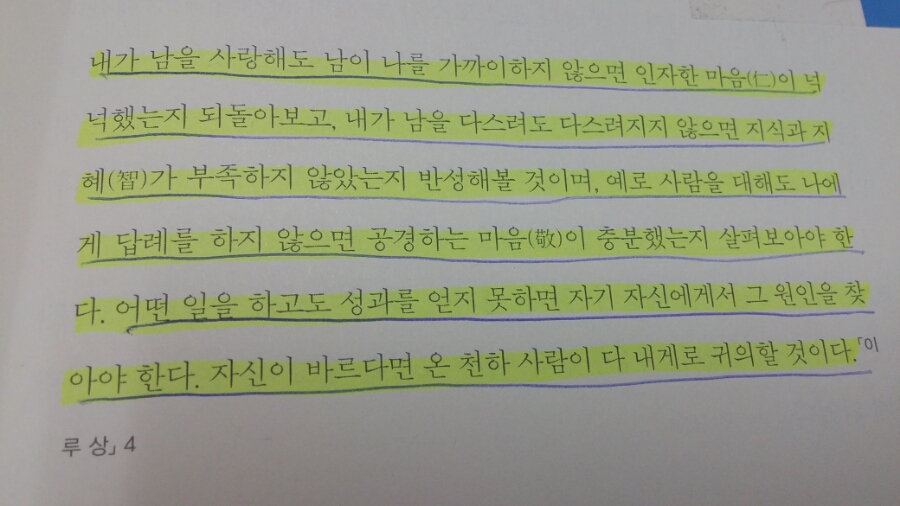 내가 남을 사랑해도 남이 나를 가까이하지 않으면 인자한 마음(仁)이 넉
넉했는지 되돌아보고, 내가 남을 다스려도 다스려지지 않으면 지식과 지
혜(智)가 부족하지 않았는지 반성해볼 것이며, 예로 사람을 대해도 나에
게 답례를 하지 않으면 공경하는 마음(敬)이 충분했는지 살펴보아야 한
다. 어떤 일을 하고도 성과를 얻지 못하면 자기 자신에게서 그 원인을 찾
아야 한다. 자신이 바르다면 온 천하 사람이 다 내게로 귀의할 것이다.「이
루 상」 4